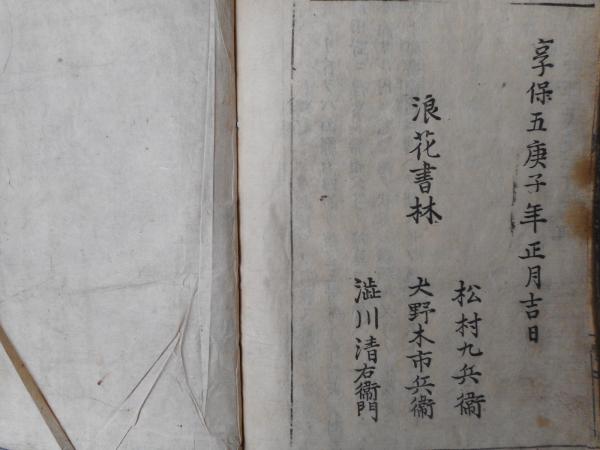 享保五庚子年正月吉日
浪花書林
松村九兵衞
大野木市兵衞
澁川清右衞門